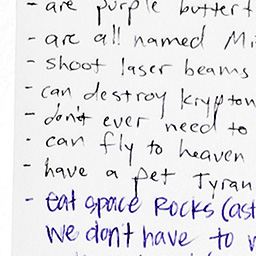 - are purple butterf
- are all named Mi
- shoot laser beams
- can destroy krypton
- don't ever need to
- can fly to heaven
- have a pet Tyran
- eat space Rocks (ast
we don't have to w